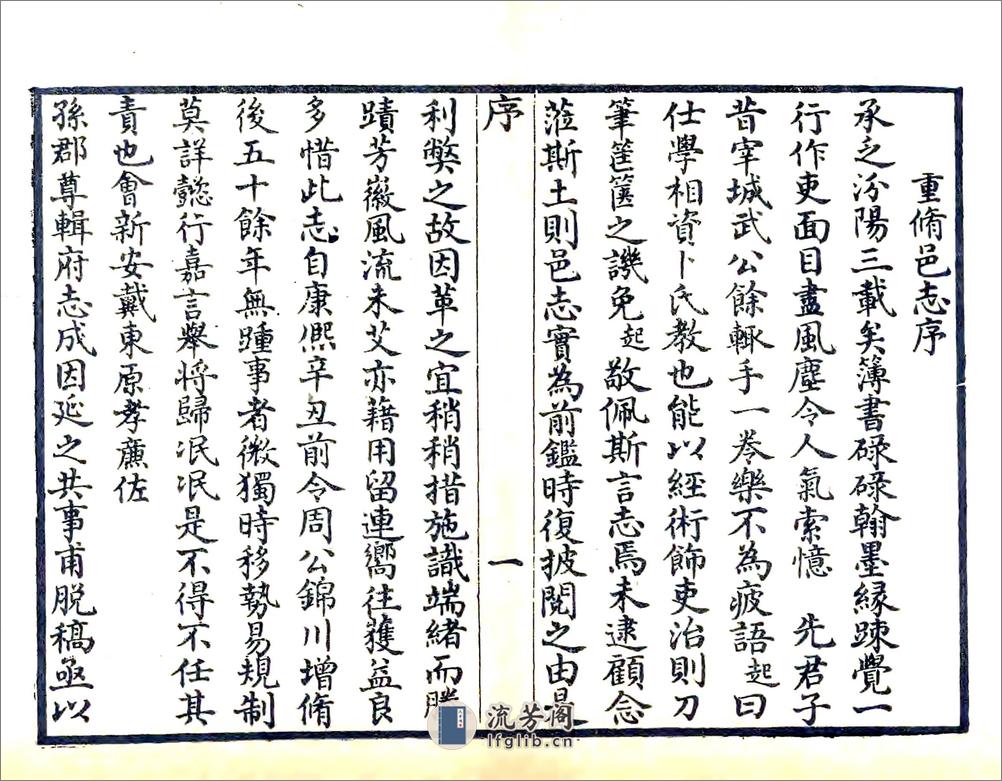 重脩邑志序
承乏汾陽三載矣簿書碌碌翰墨緣踈覺一
行作吏面目盡風塵令人氣索憶　先君子
昔宰城武公餘輒手一卷樂不為疲語起曰
仕學相資卜氏教也能以經術飾吏治則刀
筆筐篋之譏免起敬佩斯言志焉未逮顧念
蒞斯土則邑志實為前鑑時復披閱之由是
序
一
利獘之故因革之宜稍稍措施識端緒而
蹟芳徽風流未艾亦藉用留連嚮往獲益良
多惜此志自康熈辛丑前令周公錦川增脩
後五十餘年無踵事者微獨時移勢易規制
莫詳懿行嘉言舉將歸泯泯是不得不任其
責也會新安戴東原孝廉佐
孫郡尊輯府志成因延之共事甫脫稿亟以
流芳阁
lfglib.cn